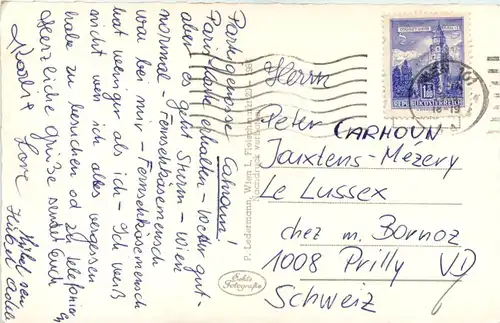 Parteigenosse Calvani!
Paris Karte erhalten - Wetter gut -
aber es geht Sturm - Wien
normal - Fernsehkasemensch
war bei mir - Fernsehkasemensch
hat weniger als ich - Ich weiß
nicht wen ich alles vergessen
habe zu besuchen od. zu telefonier
Herzliche Grüße sendet Euch
Love
P. Ledermann, Wien I, Fleischmarkt 20
Nachdruck verboten
Echte
Fotografie
REPUBLIK ÖSTERREICH
Herrn
Peter CARHOUN
Jouxtens-Mézery
Le Lussex
chez m. Bornoz
1008 Prilly VD
Schweiz